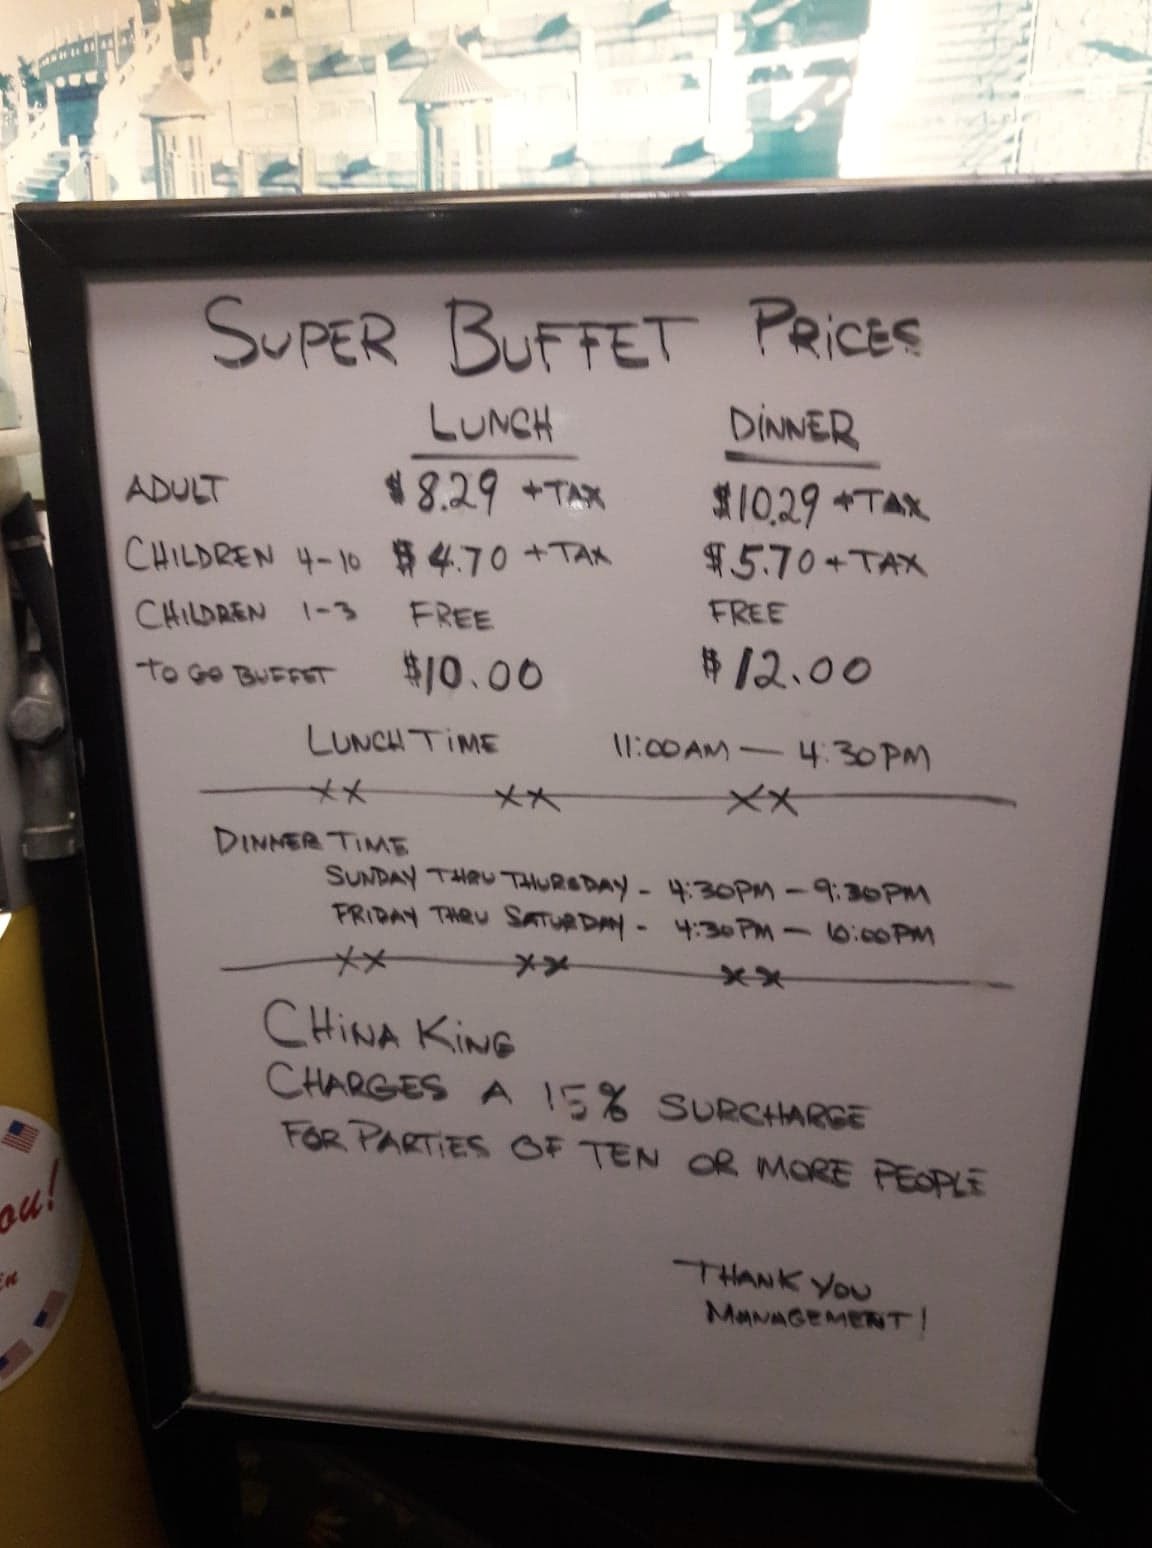 SUPER BUFFET PRICES
LUNCH DINNER
ADULT $8.29 +TAX $10.29 +TAX
CHILDREN 4-10 $4.70 +TAX $5.70 +TAX
CHILDREN 1-3 FREE FREE
TO GO BUFFET $10.00 $12.00
LUNCH TIME 11:00AM — 4:30PM
XX XX XX
DINNER TIME
SUNDAY THRU THURSDAY - 4:30PM — 9:30PM
FRIDAY THRU SATURDAY - 4:30PM — 10:00PM
XX XX XX
CHINA KING
CHARGES A 15% SURCHARGE
FOR PARTIES OF TEN OR MORE PEOPLE
THANK YOU
MANAGEMENT!
ou!